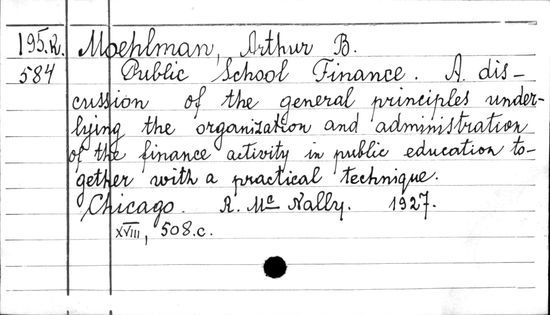 195.R. Moehlman, Arthur B.
584 Public School Finance. A dis-
cussion of the general principles under-
lying the organization and administration
of the finance activity in public education to-
gether with a practical technique.
Chicago. R. Mc Nally. 1927.
XVIII, 508.c.